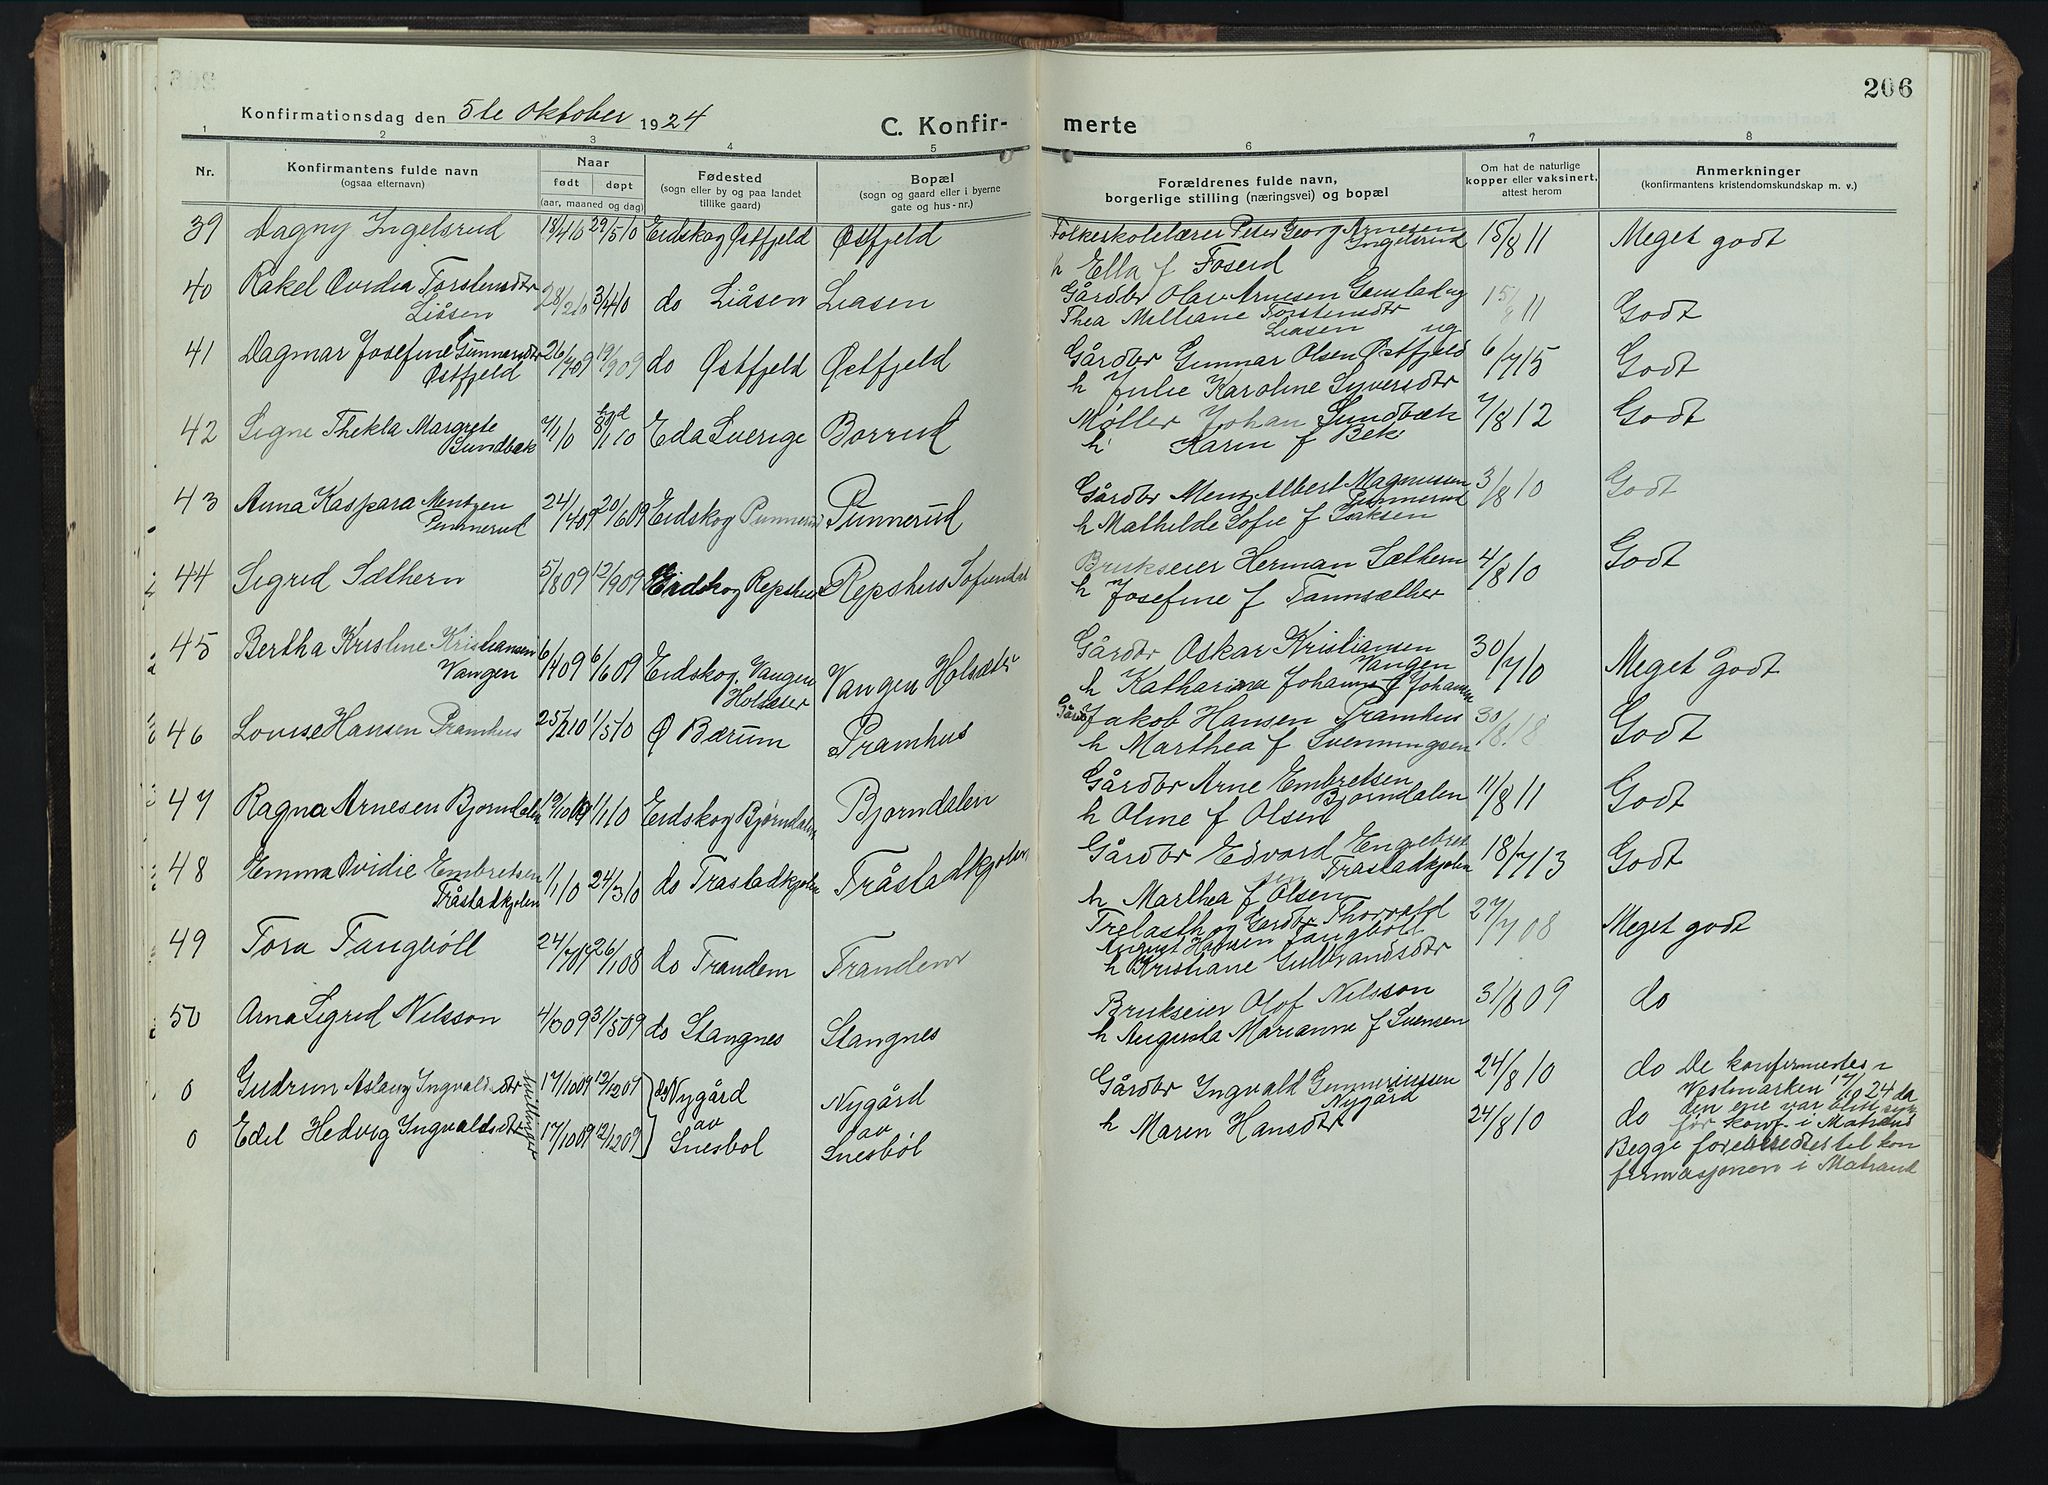 206
Konfirmationsdag den 5te Oktober 1924
C. Konfir- merte
1 2 3 4 5 6 7 8
Nr.
Konfirmantens fulde navn
(ogsaa elternavn)
Naar
født døpt
(aar, maaned og dag)
Fødested
(sogn eller by og paa landet
tillike gaard)
Bopæl
(sogn og gaard eller i byerne
gate og hus-nr.)
Forældrenes fulde navn,
borgerlige stilling (næringsvei) og bopæl
Om hat de naturlige
kopper eller vaksinert,
attest herom
Anmerkninger
(konfirmantens kristendomskundskap m. v.)
39 Dagny Ingelsrud 18/4 10 29/5 10 Eidskog Østfjeld Østfjeld
Folkeskolelærer Peter Georg Arnesen 15/8 11 Meget godt
Ingelsrud
h Ella f Foserd
40 Rakel Ovidia Torstensdtr 28/2 10 3/4 10 do Liåsen Liasen
Liåsen
Gårdbr Olav Arnesen Gamstad ug 15/8 11 Godt
Thea Milliane Torstensdtr
Liasen ug
41 Dagmar Josefine Gunnarsdtr 26/7 09 19/9 09 do Østfjeld Østfjeld
Østfjeld
Gårdbr Gunnar Olsen Østfjeld 6/7 15 Godt
h Julie Karoline Syversdtr
42 Signe Thekla Margrete 7/1 10 hjd 8/1 10 Eda Sverige Borrud
Sundbæk
Møller Johan Sundbæk 7/8 12 Godt
h Karin f Bek
43 Anna Kaspara Mentzen 24/4 09 20/6 09 Eidskog Punnerud Punnerud
Punnerud
Gårdbr Menz Albert Magnussen 3/8 10 Godt
Punnerud
h Mathilde Sofie f Isaksen
44 Sigrid Sæthern 5/8 09 12/9 09 Eidskog Repshus Repshus Sofiendal
Brukseier Herman Sæthern 4/8 10 Godt
h Josefine f Tannsæther
45 Bertha Kristine Kristiansen 6/4 09 6/6 09 Eidskog, Vangen Vangen Holsæter
Vangen Holsæter
Gårdbr Oskar Kristiansen 30/7 10 Meget godt
Vangen
h Katharina Johanne f Johann
46 Lovise Hansen Pramhus 25/2 10 1/5 10 Ø Bærum Pramhus
Gårdb Jakob Hansen Pramhus 30/8 18 Godt
h Marthea f Svenningsen
47 Ragna Arnesen Bjørndalen 19/10 09 1/1 10 Eidskog Bjørndalen Bjørndalen
Gårdbr Arne Embretsen 11/8 11 Godt
Bjørndalen
h Oline f Olsen
48 Emma Ovidie Embretsen 1/1 10 24/3 10 do Trastadkjølen Tråstadkjølen
Tråstadkjølen
Gårdbr Edvard Engebret 18/7 13 Godt
sen Trastadkjølen
h Marthea f Olsen
49 Tora Tangbøll 24/7 07 26/1 08 do Trandem Trandem
Trelasth og Gardbr Thorvald 27/7 08 Meget godt
August Hansen Tangbøll
h Kristiane Gulbrandsdtr
50 Arna Sigrid Nilsson 4/3 09 31/5 09 do Stangnes Stangnes
Brukseier Olof Nilsson 31/8 09 do
h Augusta Marianne f Svensen
0 Gudrun Aslaug Ingvaldsdtr 17/10 09 12/12 09 do Nygård Nygård
tvillinger av av
0 Edel Hedvig Ingvaldsdtr 17/10 09 12/12 09 Snesbøl Snesbøl
Gårdbr Ingvald Gunneriussen 24/8 10 do De konfirmertes i
Nygård Vestmarken 12/10 24 da
h Maren Hansdtr 24/8 10 do den ene var blitt syk
før konf. i Matrand
Begge forberedtes til kon
firmasjonen i Matrand